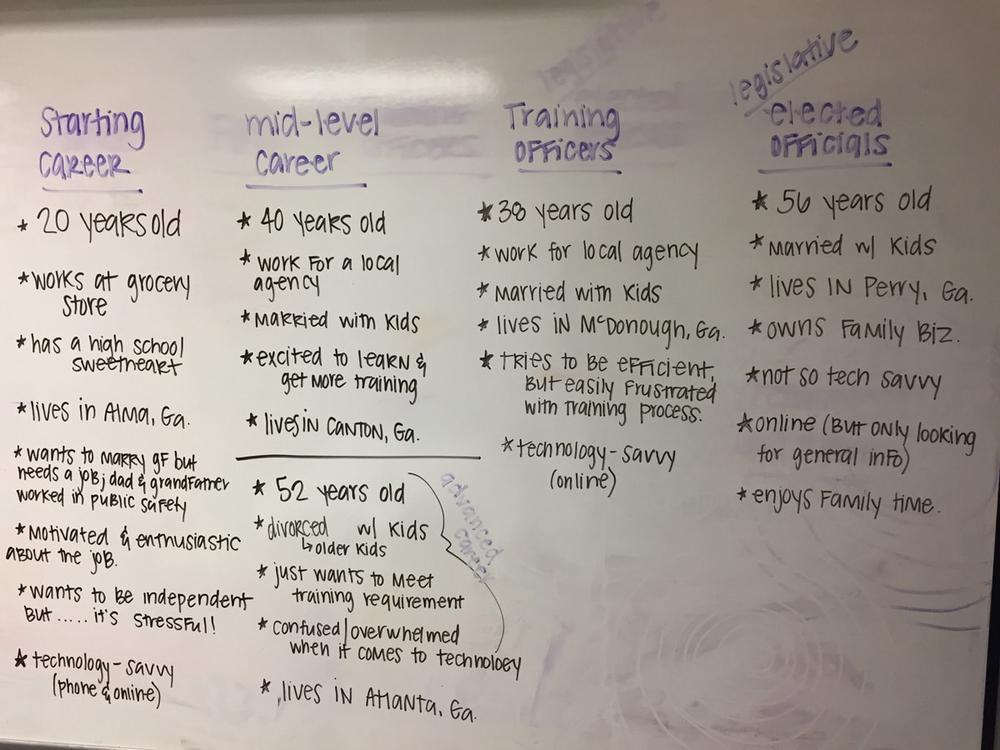 Starting
CAREER
* 20 years old
* works at grocery
store
* has a high school
sweetheart
* lives in Alma, Ga.
* wants to marry gf but
needs a job; dad & grandfather
worked in public safety
* Motivated & enthusiastic
about the job.
* wants to be independent
But ..... it's stressful!
* technology-savvy
(phone & online)
mid-level
career
* 40 years old
* work for a local
agency
* Married with kids
* excited to learn &
get more training
* lives in Canton, Ga.
advanced
career
* 52 years old
* divorced w/ kids
↳ older kids
* just wants to meet
training requirement
* confused/overwhelmed
when it comes to technology
* lives in Atlanta, Ga.
legislative
Training
OFFICERS
* 38 years old
* work for local agency
* Married with kids
* lives in McDonough, Ga.
* tries to be efficient,
But easily frustrated
with training process.
* technology-savvy
(online)
legislative
elected
OFFICIALS
* 56 years old
* Married w/ kids
* lives in Perry, Ga.
* owns Family Biz.
* not so tech savvy
* online (But only looking
for general info)
* enjoys Family time.